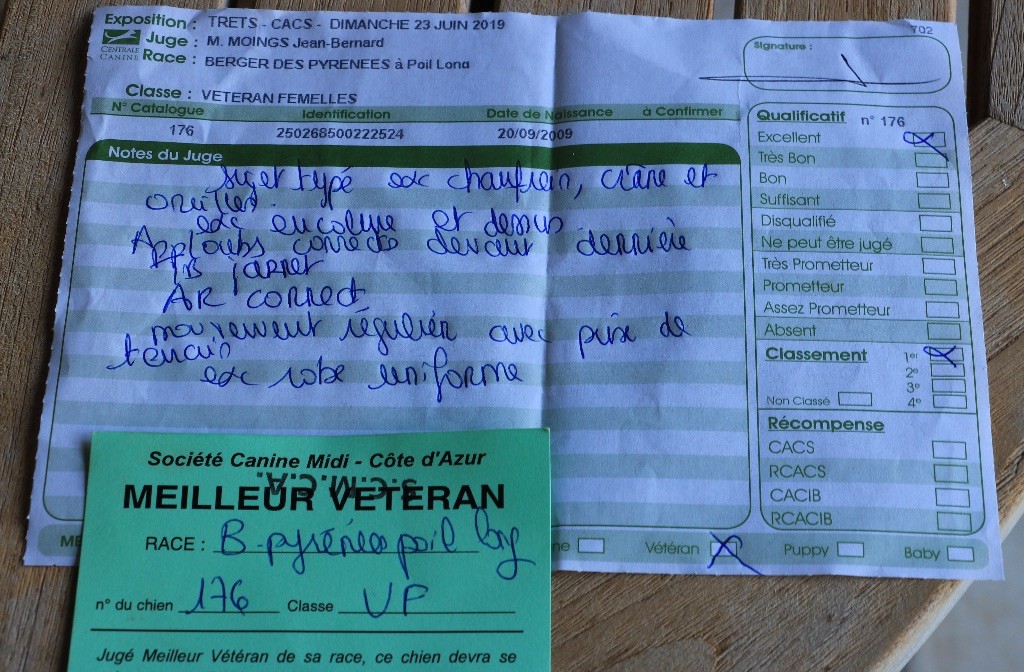 Exposition : TRETS - CACS - DIMANCHE 23 JUIN 2019
702
CENTRALE CANINE
Juge : M. MOINGS Jean-Bernard
Race : BERGER DES PYRENEES à Poil Long
Signature :
Classe : VETERAN FEMELLES
N° Catalogue Identification Date de Naissance à Confirmer
176 250268500222524 20/09/2009
Notes du Juge
Sujet typé exc chanfrein, crâne et
oreilles.
exc encolure et dessus
Applombs corrects devant derrière
TB jarret
AR correct
mouvement régulier avec prise de
terrain
exc robe uniforme
Qualificatif n° 176
Excellent
Très Bon
Bon
Suffisant
Disqualifié
Ne peut être jugé
Très Prometteur
Prometteur
Assez Prometteur
Absent
Classement 1er
2e
3e
Non Classé 4e
Récompense
CACS
RCACS
CACIB
RCACIB
ME
ne Vétéran Puppy Baby
Société Canine Midi - Côte d'Azur
S.C.M.C.A.
MEILLEUR VETERAN
RACE : B. pyrénées poil long
n° du chien 176 Classe VF
Jugé Meilleur Vétéran de sa race, ce chien devra se